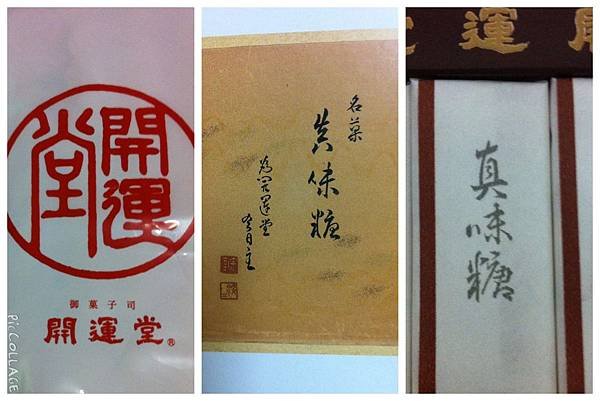 開運
堂
御菓子司
開運堂®
PicCollage
名菓
真味糖
為開運堂
開運堂
真味糖